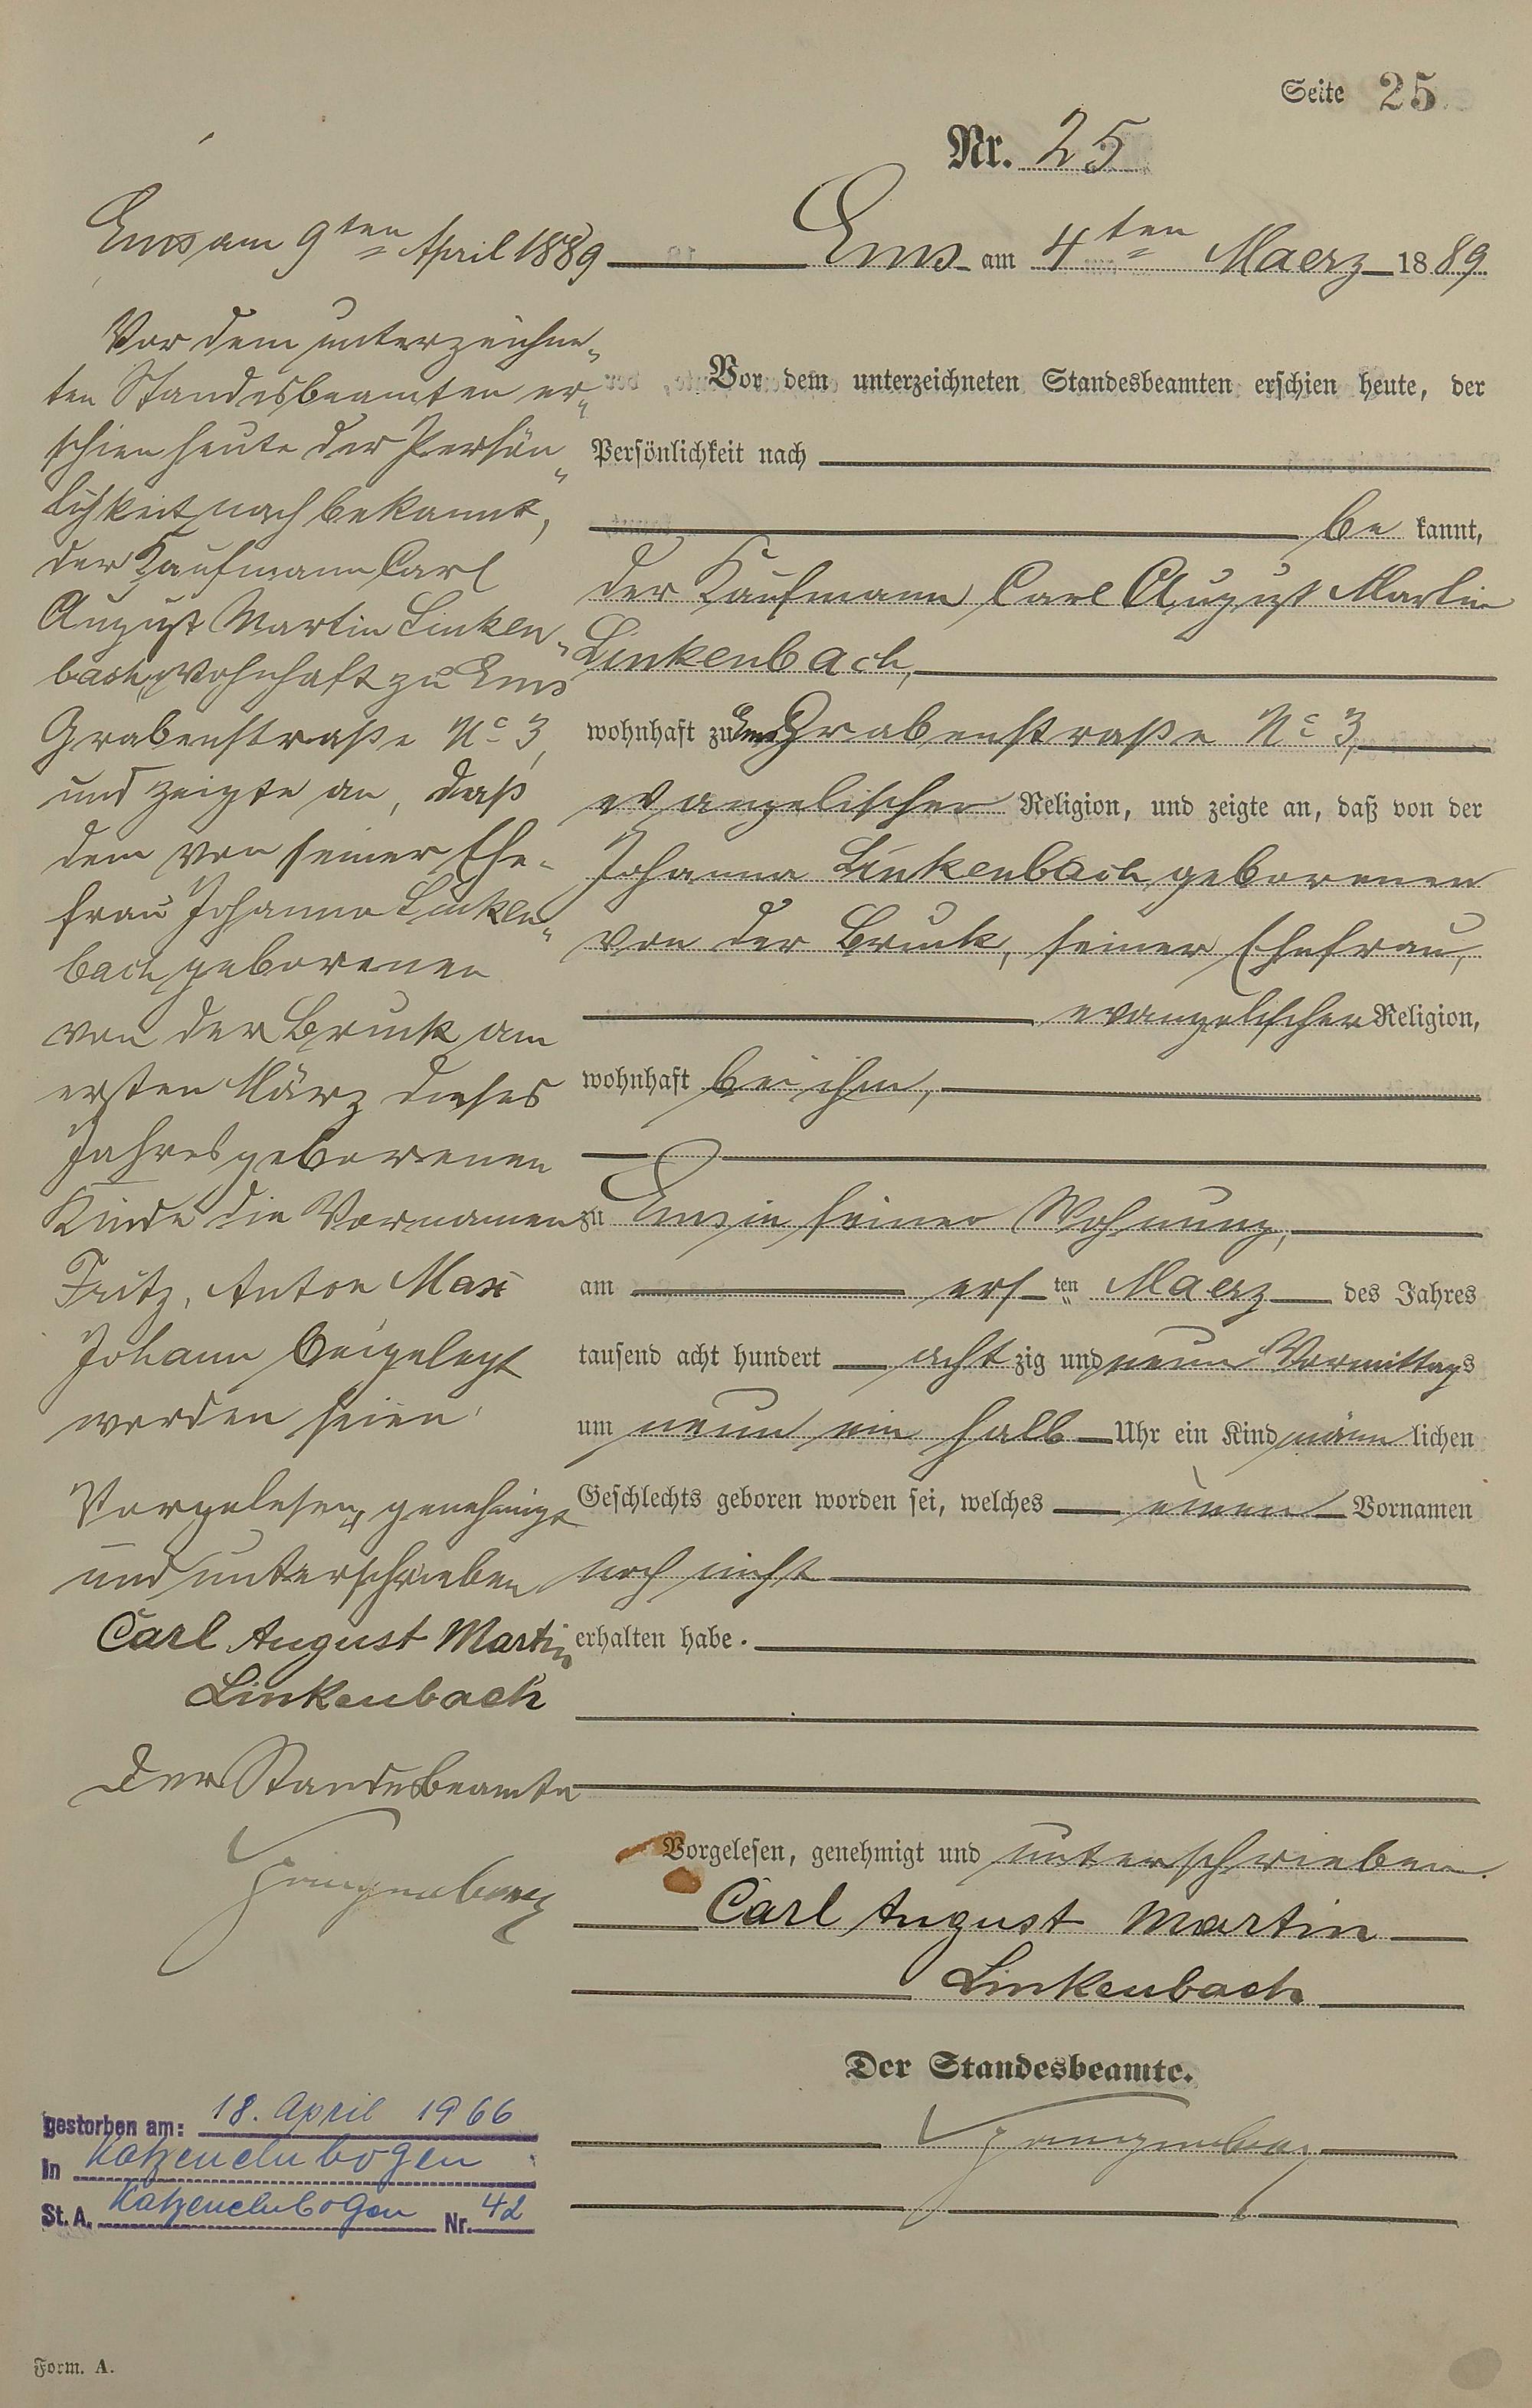 Seite 25.
Nr. 25
Ems am 4ten Maerz 1889
Vor dem unterzeichneten Standesbeamten erschien heute, der
Persönlichkeit nach
be kannt,
der Kaufmann Carl August Martin
Linkenbach,
wohnhaft zu Ems Grabenstraße No 3,
evangelischer Religion, und zeigte an, daß von der
Johanna Linkenbach geborenen
von der Bruck, seiner Ehefrau,
evangelischer Religion,
wohnhaft bei ihm,
zu Ems in seiner Wohnung,
am ersten Maerz des Jahres
tausend acht hundert achtzig und neun Vormittags
um neun ein halb Uhr ein Kind männlichen
Geschlechts geboren worden sei, welches einen Vornamen
noch nicht
erhalten habe.
Vorgelesen, genehmigt und unterschrieben.
Carl August Martin
Linkenbach
Der Standesbeamte.
Ems am 9ten April 1889
Vor dem unterzeichne-
ten Standesbeamten er-
schien heute der Persön-
lichkeit nach bekannt,
der Kaufmann Carl
August Martin Linken-
bach, wohnhaft zu Ems
Grabenstraße No 3,
und zeigte an, daß
dem von seiner Ehe-
frau Johanna Linken-
bach geborenen
von der Bruck am
ersten März dieses
Jahres geborenen
Kinde die Vornamen
Fritz, Anton Max
Johann beigelegt
worden seien.
Vorgelesen, genehmigt
und unterschrieben
Carl August Martin
Linkenbach
Der Standesbeamte
gestorben am: 18. April 1966
in Katzenelnbogen
St. A. Katzenelnbogen Nr. 42
Form. A.